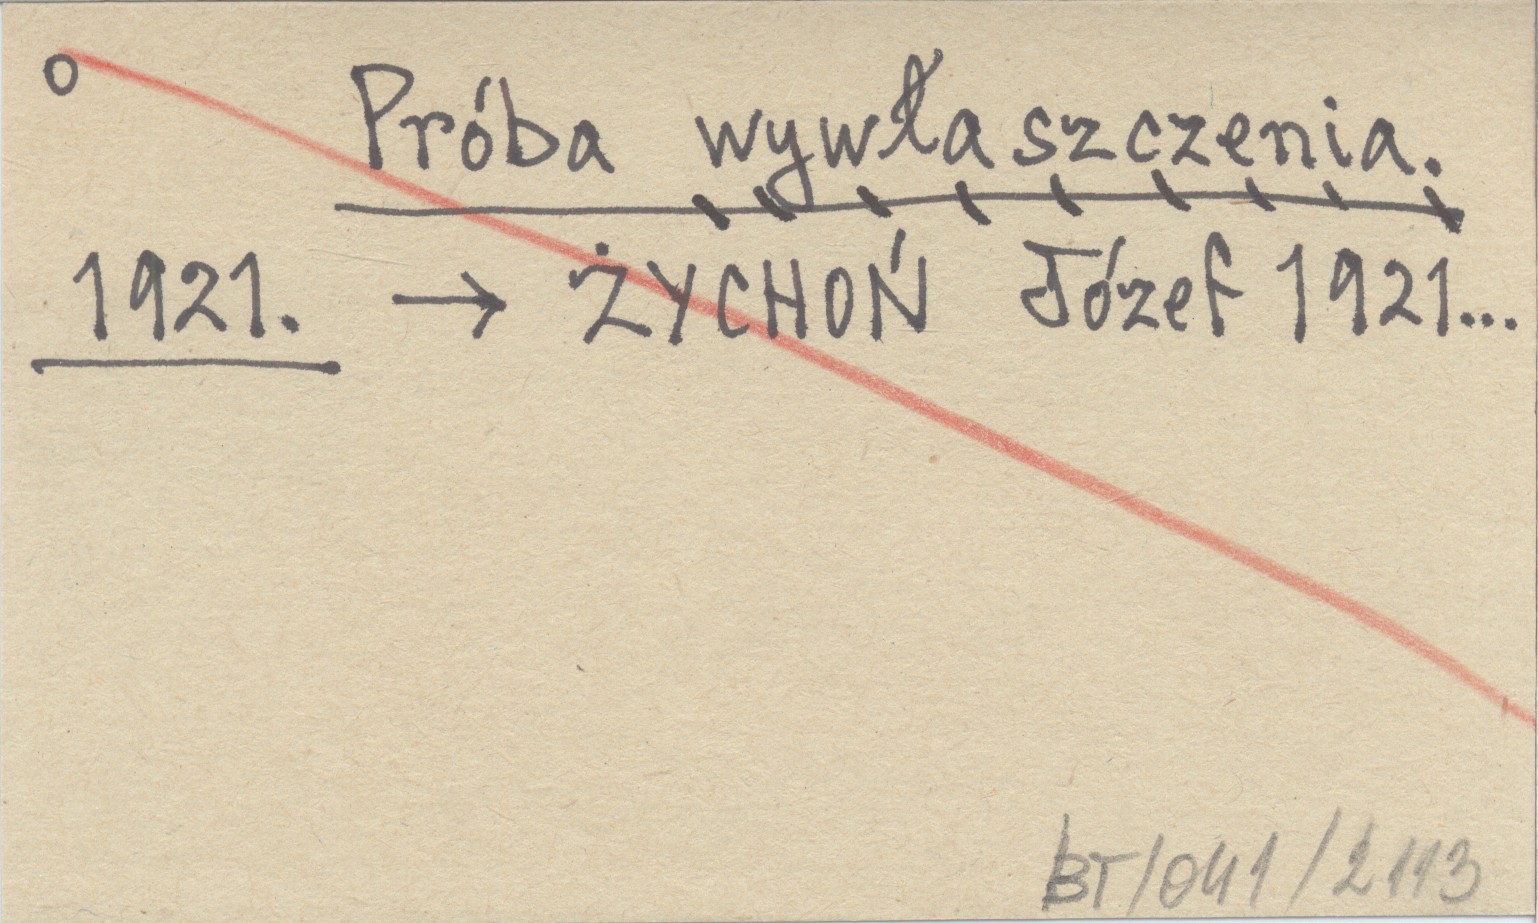 o Próba wywłaszczenia.
1921. → ŻYCHOŃ Józef 1921...
BT/041/2113